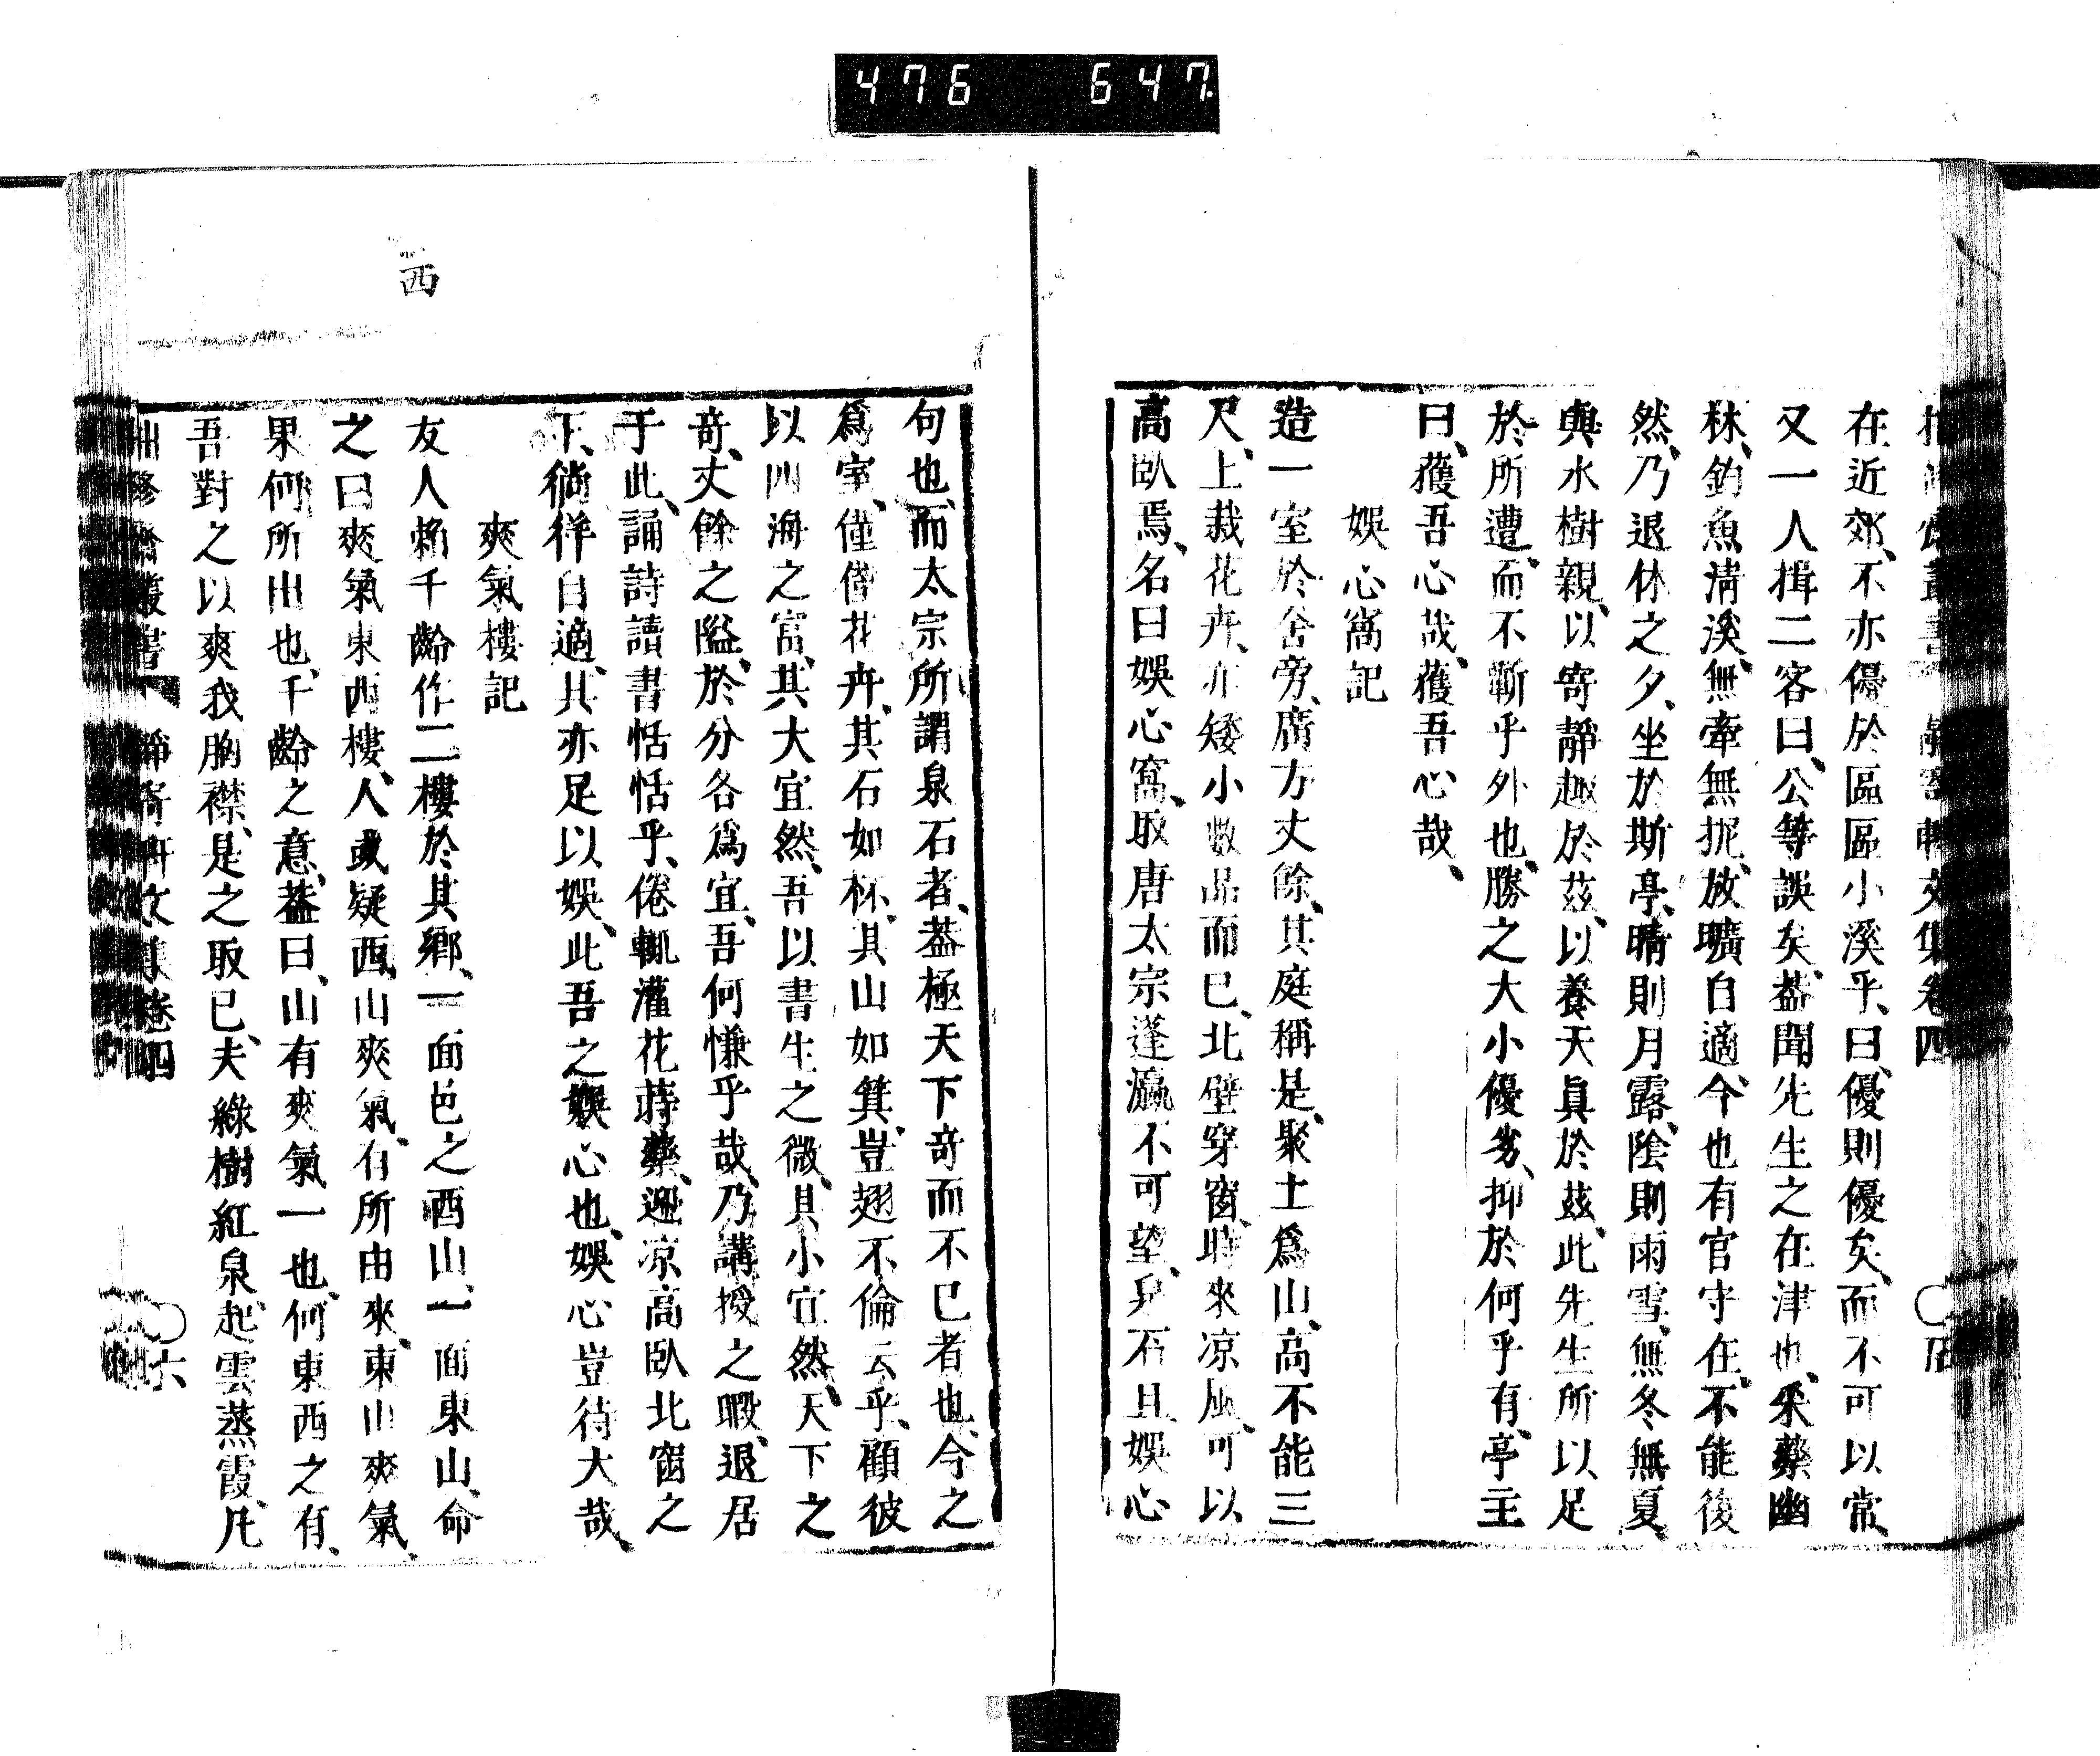 476 647.
在近郊、不亦優於區區小溪乎、曰、優則優矣、而不可以常、
又一人揖二客曰、公等誤矣、葢聞先生之在津也、采藥幽
林、釣魚淸溪、無牽無抳、放曠自適、今也有官守在、不能後
然、乃退休之夕、坐於斯亭、晴則月露、陰則雨雪、無冬無夏、
與水樹親、以寄靜趣於茲、以養天眞於茲、此先生所以足
於所遭、而不漸乎外也、勝之大小優劣、抑於何乎有、亭主
曰、獲吾心哉、獲吾心哉、
娛心窩記
造一室於舍旁、廣方丈餘、其庭稱是、聚土爲山、高不能三
尺、上栽花卉、亦矮小數品而已、北壁穿窗、時來凉風、可以
高臥焉、名曰娛心窩、取唐太宗蓬瀛不可望、泉石且娛心
句也、而太宗所謂泉石者、葢極天下奇而不已者也、今之
爲室、僅僅花卉、其石如杯、其山如箕、豈翅不倫云乎、顧彼
以四海之富、其大宜然、吾以書生之微、其小宜然、天下之
奇、丈餘之隘、於分各爲宜、吾何慊乎哉、乃講授之暇、退居
于此、誦詩讀書恬恬乎、倦輒灌花蒔藥、迎凉高臥北窗之
下、徜徉自適、其亦足以娛、此吾之娛心也、娛心豈待大哉、
爽氣樓記
友人賴千齡作二樓於其鄉、一面邑之酉山、一面東山、命
之曰爽氣東西樓、人或疑西山爽氣、有所由來、東山爽氣、
果何所由也、千齡之意、葢曰、山有爽氣一也、何東西之有、
吾對之以爽我胸襟、是之取已、夫綠樹紅泉、起雲蒸霞、凡
西
卷四
六